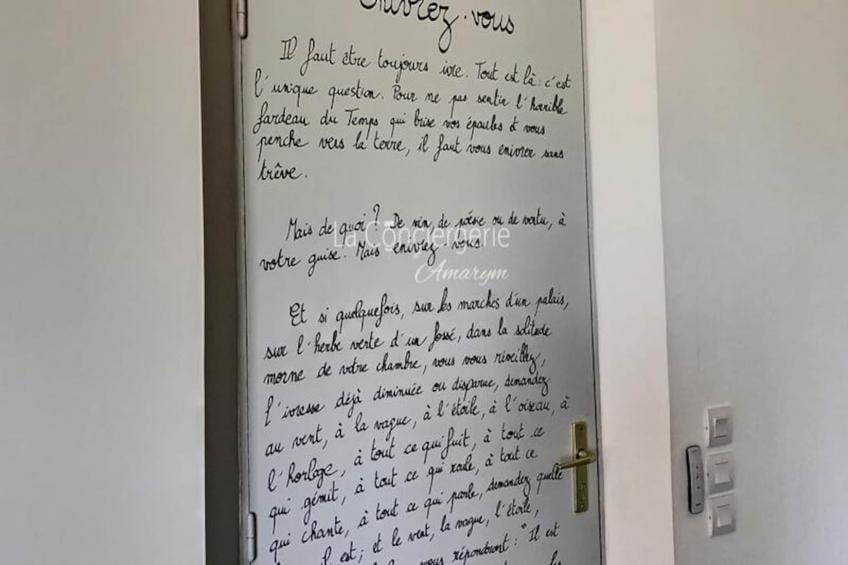 Enivrez-vous
Il faut être toujours ivre. Tout est là: c'est
l'unique question. Pour ne pas sentir l'horrible
fardeau du Temps qui brise vos épaules et vous
penche vers la terre, il faut vous enivrer sans
trêve.
Mais de quoi? De vin, de poésie ou de vertu, à
votre guise. Mais enivrez-vous.
La Conciergerie
Amarym
Et si quelquefois, sur les marches d'un palais,
sur l'herbe verte d'un fossé, dans la solitude
morne de votre chambre, vous vous réveillez,
l'ivresse déjà diminuée ou disparue, demandez
au vent, à la vague, à l'étoile, à l'oiseau, à
l'horloge, à tout ce qui fuit, à tout ce
qui gémit, à tout ce qui roule, à tout ce
qui chante, à tout ce qui parle, demandez quelle
il est; et le vent, la vague, l'étoile,
vous répondront: "Il est
les